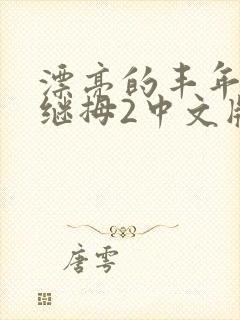 漂亮的丰年
继拇2中文版
唐雩